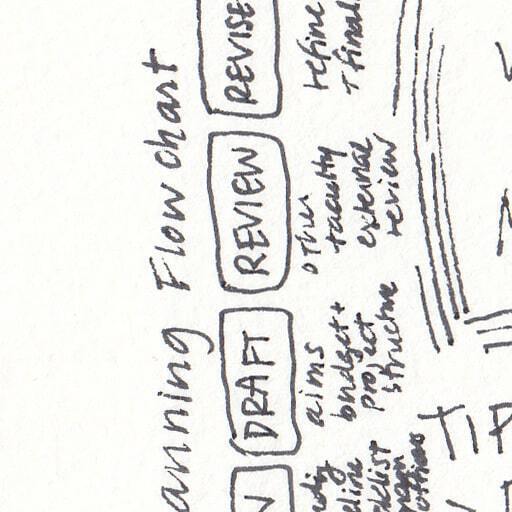 anning Flowchart
DRAFT
aims
budget +
project
structure
REVIEW
other
faculty
external
review
REVISE
refine
+ final